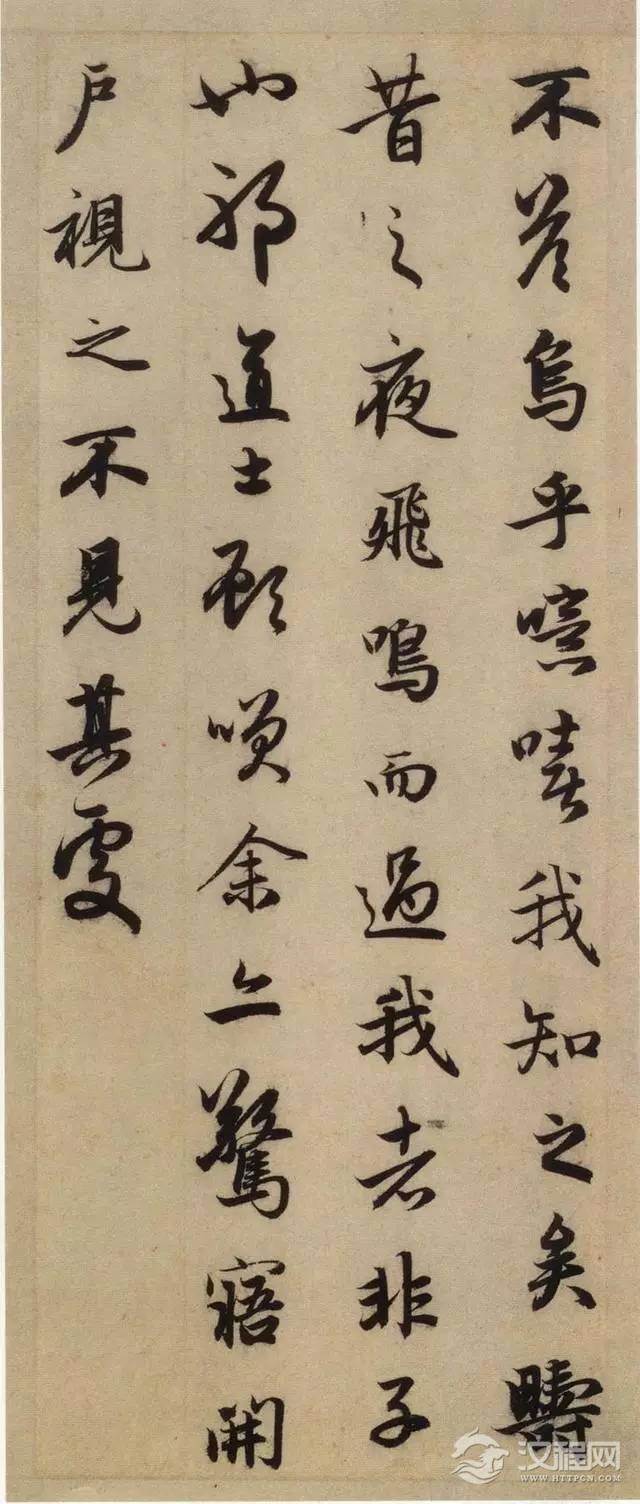 不答烏乎噫嘻我知之矣疇
昔之夜飛鳴而過我者非子
也邪道士顧笑余亦驚寤開
戶視之不見其處
汉程网
WWW.HTTPCN.COM